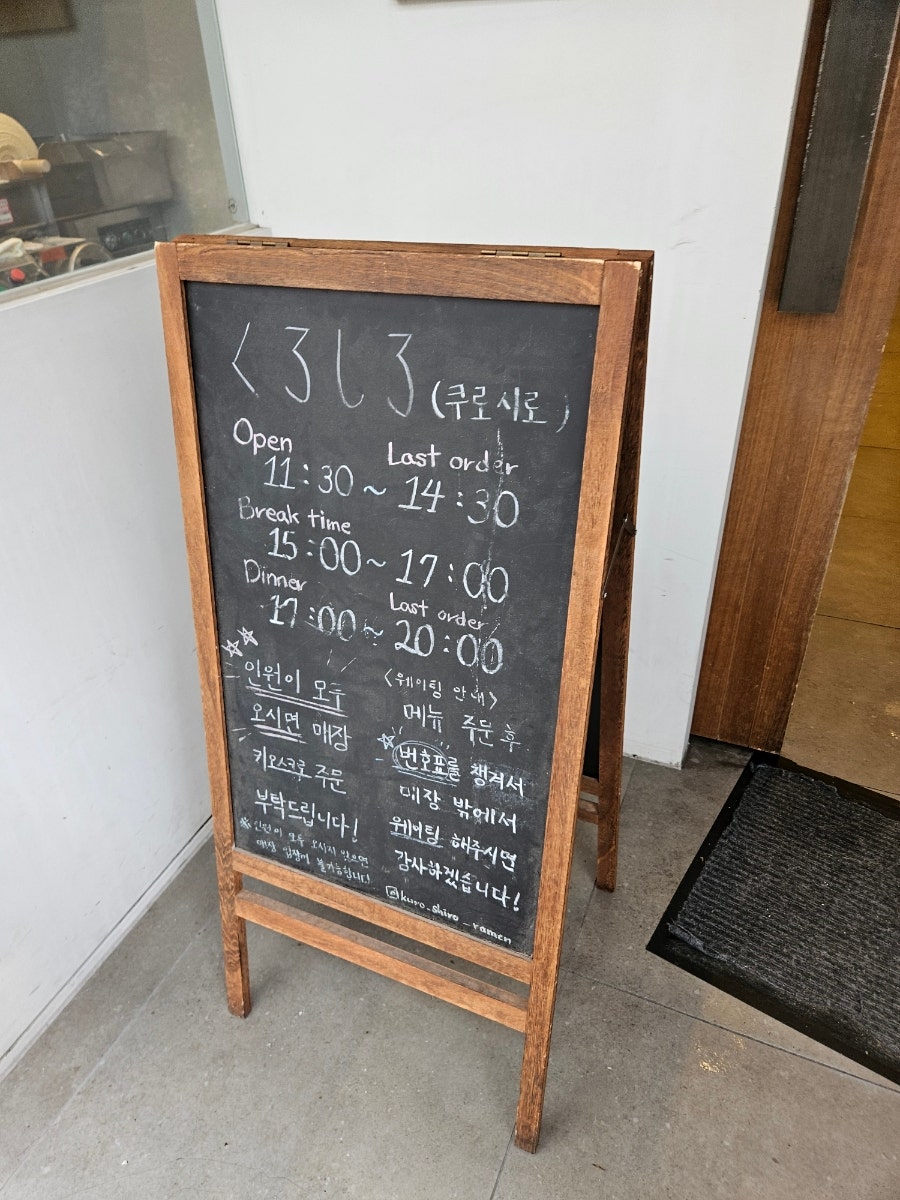 くろしろ (쿠로시로)
Open
11:30 ~
Last order
14:30
Break time
15:00 ~ 17:00
Dinner
17:00 ~
Last order
20:00
인원이 모두
오시면 매장
키오스크로 주문
부탁드립니다!
※인원이 모두 오시지 않으면
매장 입장이 불가능합니다!
<웨이팅 안내>
메뉴 주문 후
번호표를 챙겨서
매장 밖에서
웨이팅 해주시면
감사하겠습니다!
@kuro_shiro_ramen